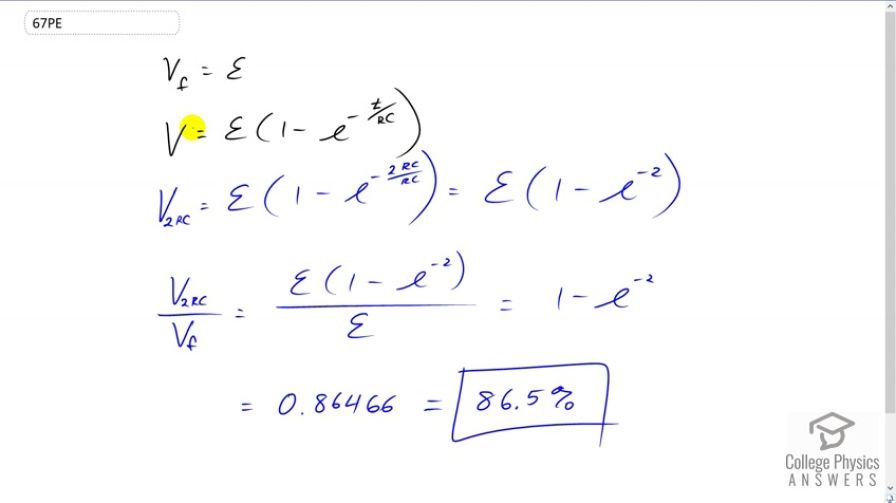 67PE
V_f = ℰ
V = ℰ(1 - e^(-t/RC))
V_2RC = ℰ(1 - e^(-2RC/RC)) = ℰ(1 - e^-2)
V_2RC/V_f = ℰ(1 - e^-2)/ℰ = 1 - e^-2
= 0.86466 = 86.5%
College Physics
ANSWERS